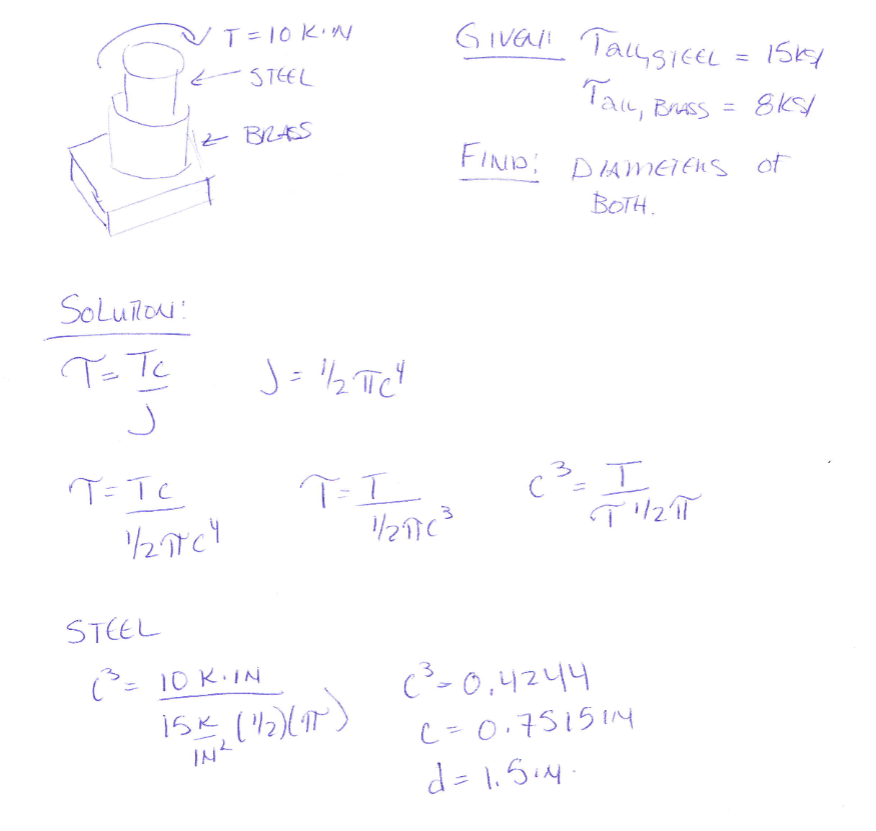 T = 10 K·IN
STEEL
BRASS
GIVEN: τALL, STEEL = 15KSI
τALL, BRASS = 8KSI
FIND: DIAMETERS OF
BOTH.
SOLUTION:
τ = Tc/J J = 1/2 πc⁴
τ = Tc/(1/2πc⁴) τ = T/(1/2πc³) c³ = T/(τ 1/2π)
STEEL
c³ = 10 K·IN/(15 K/IN² (1/2)(π)) c³ = 0.4244
c = 0.7515 IN
d = 1.5 IN.